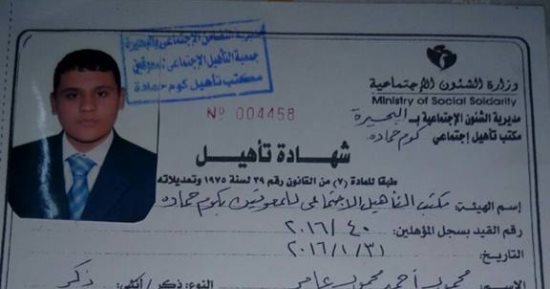 مديرية التضامن الإجتماعى بالبحيرة
جمعية التأهيل الإجتماعى للمعوقين
مكتب تأهيل كوم حمادة
وزارة الشئون الإجتماعية
Ministry of Social Soldarity
مديرية الشئون الإجتماعية بـ البحيرة
مكتب تأهيل إجتماعي كوم حماده
Nº 004458
شهادة تأهيل
طبقا للمادة (٧) من القانون رقم ٣٩ لسنة ١٩٧٥ وتعديلاته
إسم الهيئة: مكتب التأهيل الاجتماعى للمعوقين بكوم حماده
رقم القيد بسجل المؤهلين: ٤٠ / ٢٠١٦
التاريخ: ٣١ / ١ / ٢٠١٦
محمود أحمد محمود عامر النوع: ذكر / أنثى: ذكر